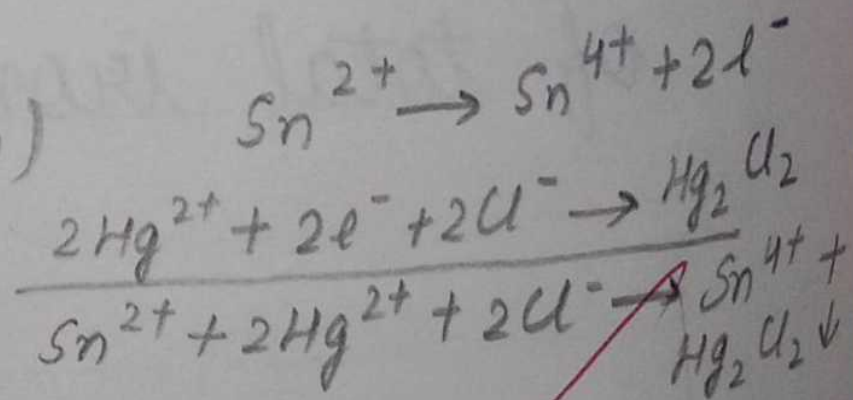 ) Sn²⁺ → Sn⁴⁺ + 2e⁻
2Hg²⁺ + 2e⁻ + 2Cl⁻ → Hg₂Cl₂
Sn²⁺ + 2Hg²⁺ + 2Cl⁻ → Sn⁴⁺ +
Hg₂Cl₂↓